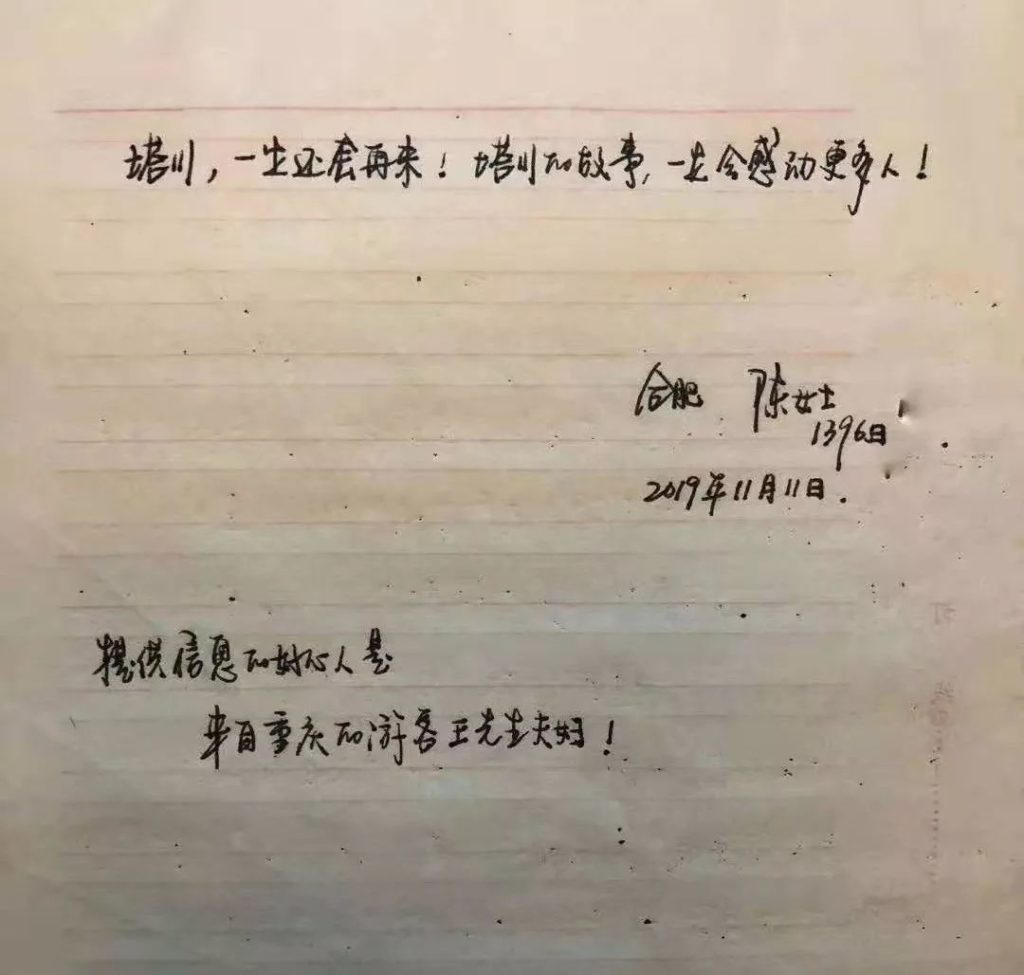 塔川，一定还会再来！塔川的故事，一定会感动更多人！
合肥 陈女士
2019年11月11日.
提供信息的好心人是
来自重庆的游客王先生夫妇！